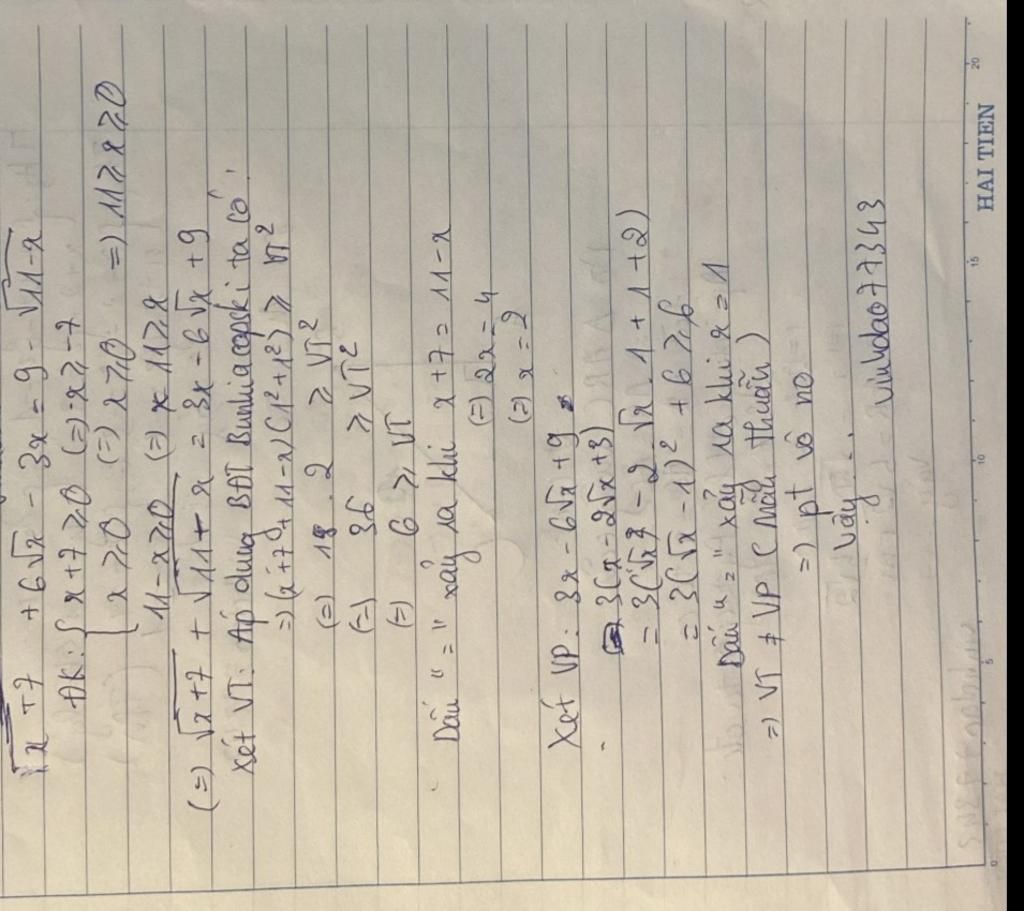 √x+7 + 6√x - 3x = 9 - √11-x
ĐK: { x+7 ≥ 0 (=) x ≥ -7
x ≥ 0 (=) x ≥ 0 =) 11 ≥ x ≥ 0
11-x ≥ 0 (=) x 11 ≥ x
(=) √x+7 + √11-x = 3x - 6√x + 9
Xét VT: Áp dụng BĐT Bunhiacopski ta có:
=) (x+7+11-x)(1²+1²) ≥ VT²
(=) 18 . 2 ≥ VT²
(=) 36 ≥ VT²
(=) 6 ≥ VT
Dấu "=" xảy ra khi x+7 = 11-x
(=) 2x = 4
(=) x = 2
Xét VP: 3x - 6√x + 9
3(x - 2√x + 3)
= 3(√x² - 2.√x.1 + 1 + 2)
= 3(√x - 1)² + 6 ≥ 6
Dấu "=" xảy ra khi x = 1
=) VT ≠ VP (Mâu thuẫn)
=) pt vô no
Vậy..
vinhdao77343
HAI TIEN
0 5 10 15 20